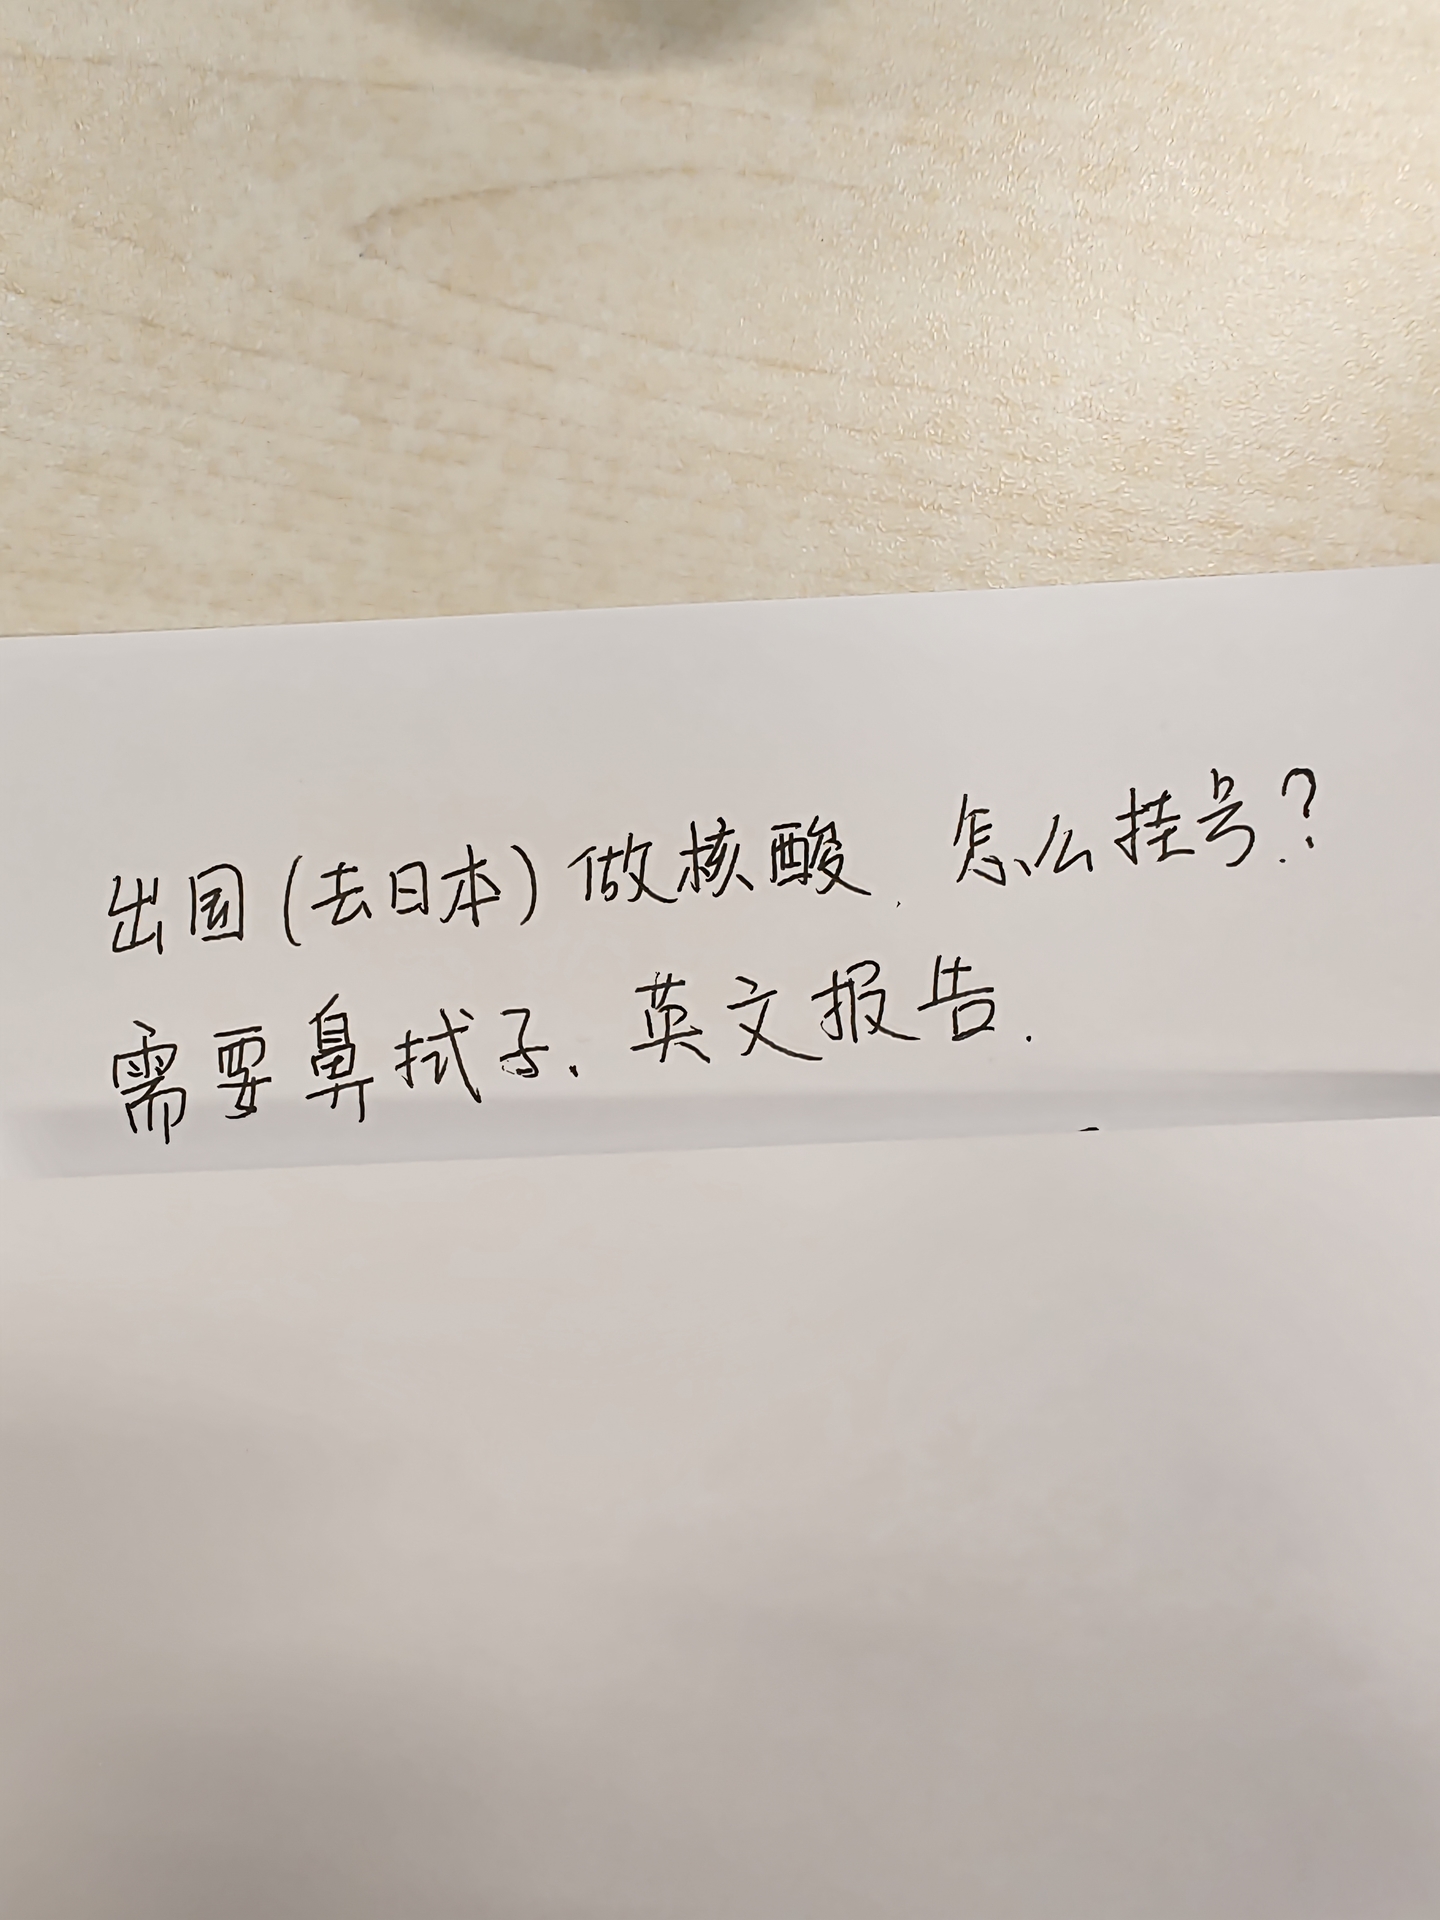 出国(去日本)做核酸,怎么挂号?
需要鼻拭子、英文报告.